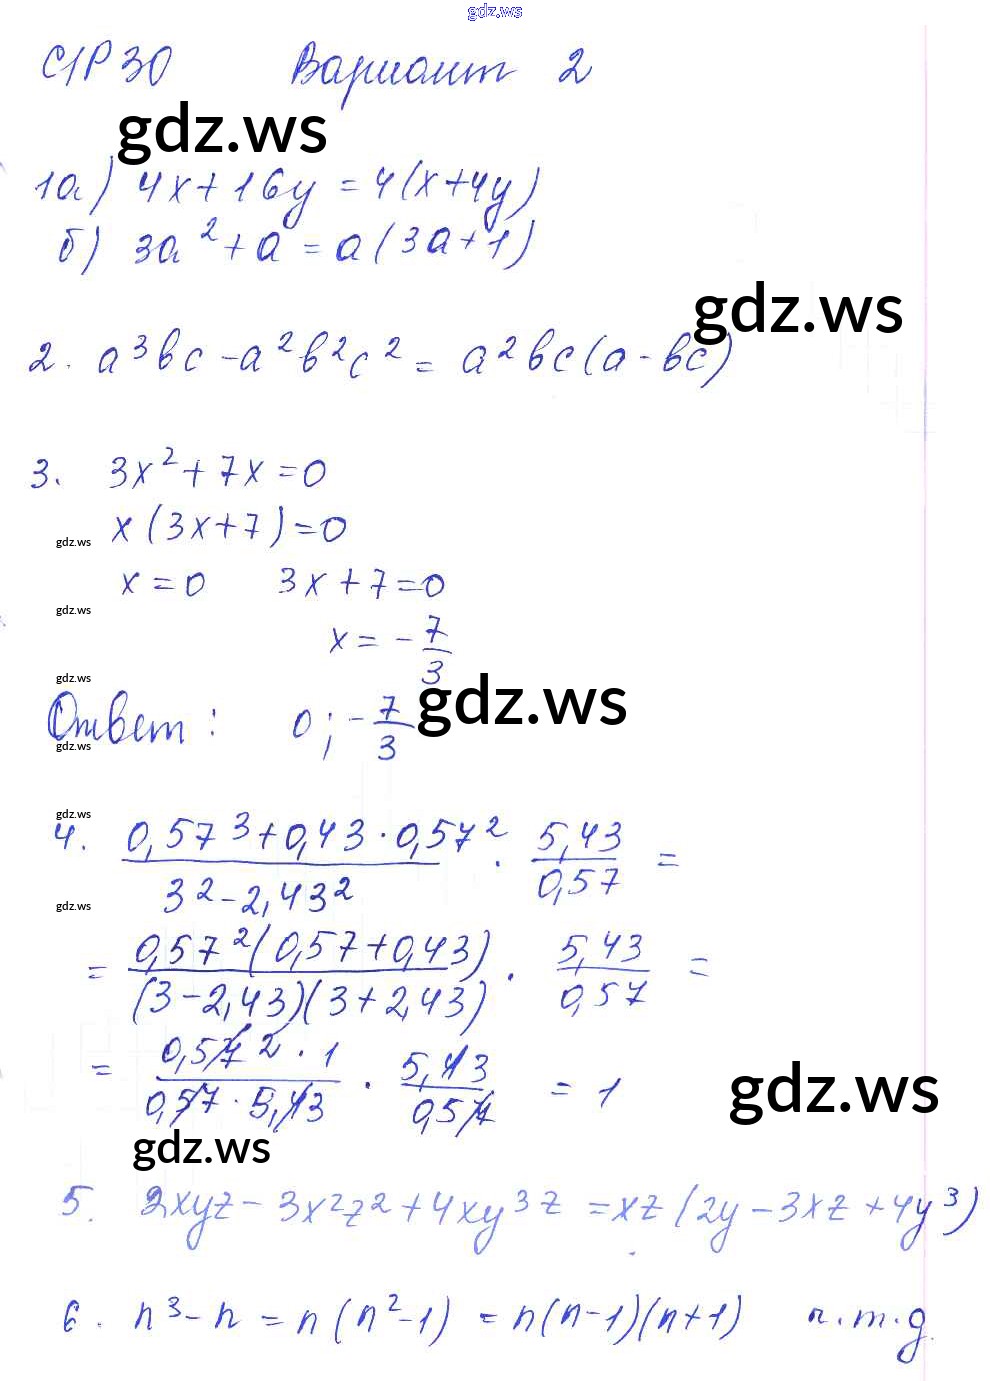 gdz.ws
С/Р 30 Вариант 2
gdz.ws
1а) 4x + 16y = 4(x + 4y)
б) 3a² + a = a(3a + 1)
gdz.ws
2. a³bc - a²b²c² = a²bc(a - bc)
3. 3x² + 7x = 0
x(3x + 7) = 0
gdz.ws
x = 0 3x + 7 = 0
gdz.ws
x = - 7/3
gdz.ws
gdz.ws
Ответ: 0; - 7/3
gdz.ws
gdz.ws
4. (0,57³ + 0,43 · 0,57²)/(3² - 2,43²) · 5,43/0,57 =
gdz.ws
= 0,57²(0,57 + 0,43)/((3 - 2,43)(3 + 2,43)) · 5,43/0,57 =
= (0,57² · 1)/(0,57 · 5,43) · 5,43/0,57 = 1
gdz.ws
gdz.ws
5. 2xyz - 3x²z² + 4xy³z = xz(2y - 3xz + 4y³)
6. n³ - n = n(n² - 1) = n(n - 1)(n + 1) ч.т.д.